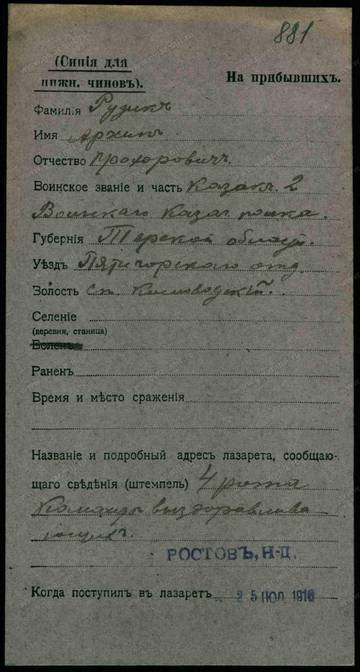 881
(Синія для
нижн. чиновъ).
На прибывшихъ.
Фамилія Рудикъ
Имя Архипъ
Отчество Прохоровичъ
Воинское званіе и часть Казакъ 2
Казач. полка.
Губернія Терской области.
Уѣздъ Пятигорскаго отд.
Волость ст. Кисловодской.
Селеніе
(деревня, станица)
Боленъ
Раненъ
Время и мѣсто сраженія
Названіе и подробный адресъ лазарета, сообщаю-
щаго свѣдѣнія (штемпель) 4 рота
Команды выздоравлива-
ющихъ.
РОСТОВЪ, Н-Д.
Когда поступилъ въ лазаретъ 25 ІЮЛ 1916